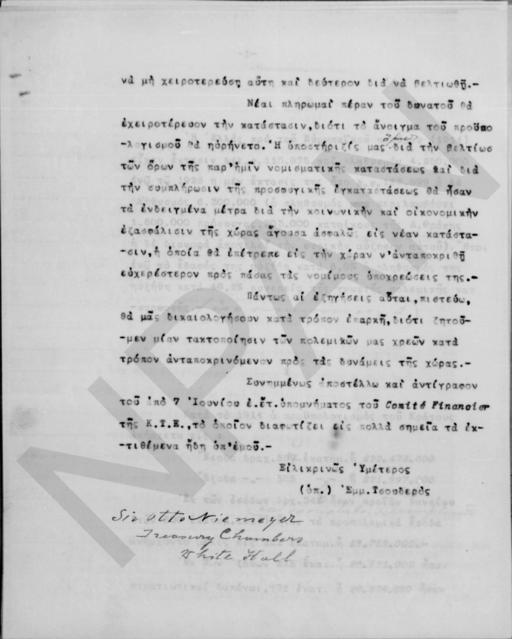 νὰ μὴ χειροτερεύσῃ αὕτη καὶ δεύτερον διὰ νὰ βελτιωθῇ.-
Νέαι πληρωμαὶ πέραν τοῦ δυνατοῦ θὰ
ἐχειροτέρευον τὴν κατάστασιν, διότι τὸ ἄνοιγμα τοῦ προϋπο
-λογισμοῦ θὰ ηὐρύνετο. Ἡ ὑποστήριξίς μας διὰ τὴν βελτίωσ
τῶν ὅρων τῆς παρ'ἡμῖν νομισματικῆς καταστάσεως καὶ διὰ
τὴν συμπλήρωσιν τῆς προσφυγικῆς ἐγκαταστάσεως θὰ ἦσαν
τὰ ἐνδεδειγμένα μέτρα διὰ τὴν κοινωνικὴν καὶ οἰκονομικὴν
ἐξασφάλισιν τῆς χώρας ἄγουσα ἀσφαλῶς εἰς νέαν κατάστα-
-σιν, ἡ ὁποία θὰ ἐπέτρεπε εἰς τὴν χώραν ν'ἀνταποκριθῇ
εὐχερέστερον πρὸς πάσας τὰς νομίμους ὑποχρεώσεις της.-
Πάντως αἱ ἐξηγήσεις αὗται, πιστεύω,
θὰ μᾶς δικαιολογήσουν κατὰ τρόπον ἐπαρκῆ, διότι ζητοῦ-
-μεν μίαν τακτοποίησιν τῶν πολεμικῶν μας χρεῶν κατὰ
τρόπον ἀνταποκρινόμενον πρὸς τὰς δυνάμεις τῆς χώρας.-
Συνημμένως ἀποστέλλω καὶ ἀντίγραφον
τοῦ ἀπὸ 7 Ἰουνίου ἐ.ἔτ. ὑπομνήματος τοῦ Comité Financier
τῆς Κ.Τ.Ε., τὸ ὁποῖον διαφωτίζει εἰς πολλὰ σημεῖα τὰ ἐκ-
-τιθέμενα ἤδη ὑπ'ἐμοῦ.-
Εἰλικρινῶς Ὑμέτερος
(ὑπ.) Ἐμμ. Τσουδερὸς
Sir Otto Niemeyer
Treasury Chambers
White Hall
NPAM